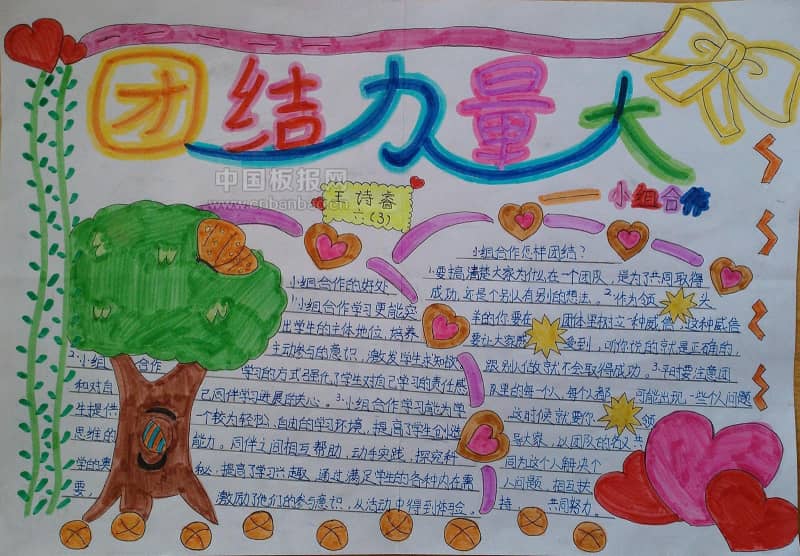 团结力量大
中国板报网
www.cnbanbao.cn
王诗睿
六(3)
小组合作
小组合作的好处
1.小组合作学习更能突
出学生的主体地位，培养
主动参与的意识，激发学生求知欲
2.小组合作
学习的方式强化了学生对自己学习的责任感
和对自己同伴学习进展的关心。3.小组合作学习能为学
生提供一个较为轻松、自由的学习环境，提高了学生创造
思维的能力。同伴之间相互帮助，动手实践，探究科
学的奥秘，提高了学习兴趣，通过满足学生的各种内在需
要，激励了他们的参与意识，从活动中得到体验。
小组合作怎样团结？
1.要搞清楚大家为什么在一个团队，是为了共同取得
成功，还是个别人有别的想法。2.作为领头
羊的你要在团体里树立一种威信，这种威信
要让大家感受到，听你说的就是正确的，
跟别人做就不会取得成功。3.平时要注意团
队里的每一个人，每个人都可能出现一些个人问题
这时候就要你领
导大家，以团队的名义共
同为这个人解决个
人问题，相互扶
持，共同努力。